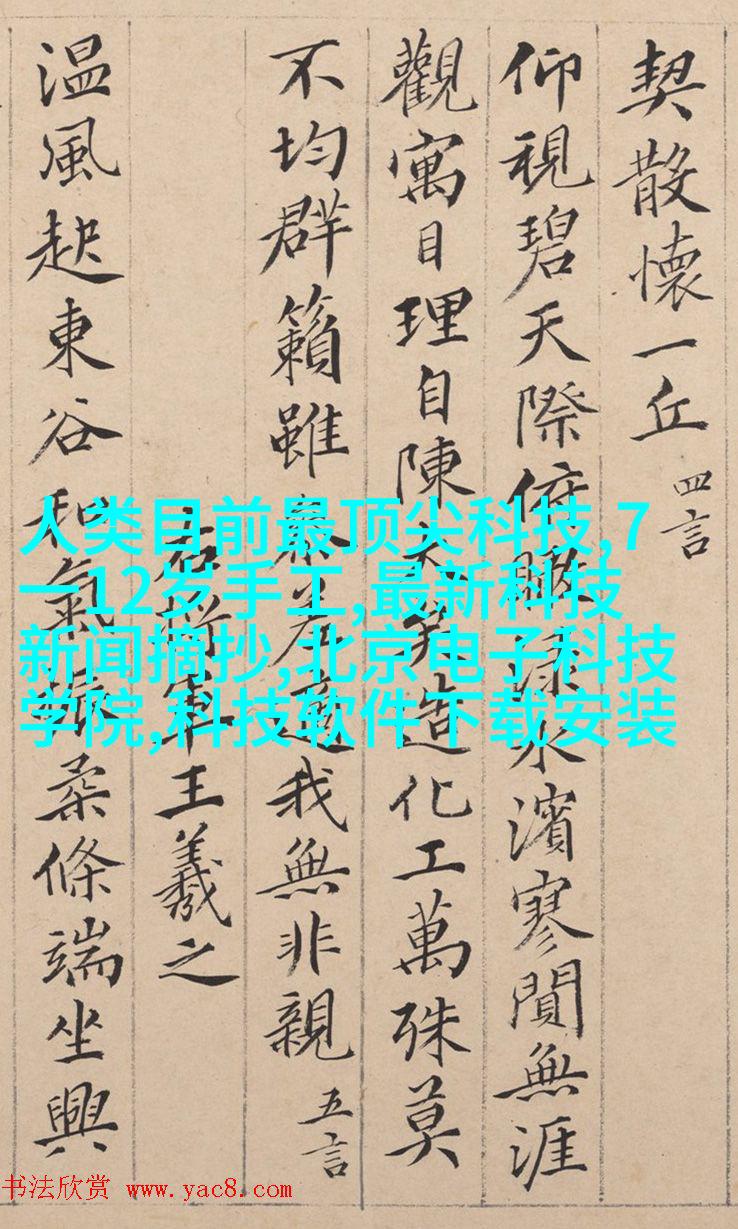 契散懷一丘 四言
仰視碧天際俯瞰淥水濱寥閴無涯
觀寓目理自陳大矣造化工萬殊莫
不均群籟雖參差適我無非親 五言
右將軍王羲之
温風起東谷和氣振柔條端坐興
人类目前最顶尖科技,7
一12岁手工,最新科技
新闻摘抄,北京电子科技
学院,科技软件下载安装
书法欣赏 www.yac8.com